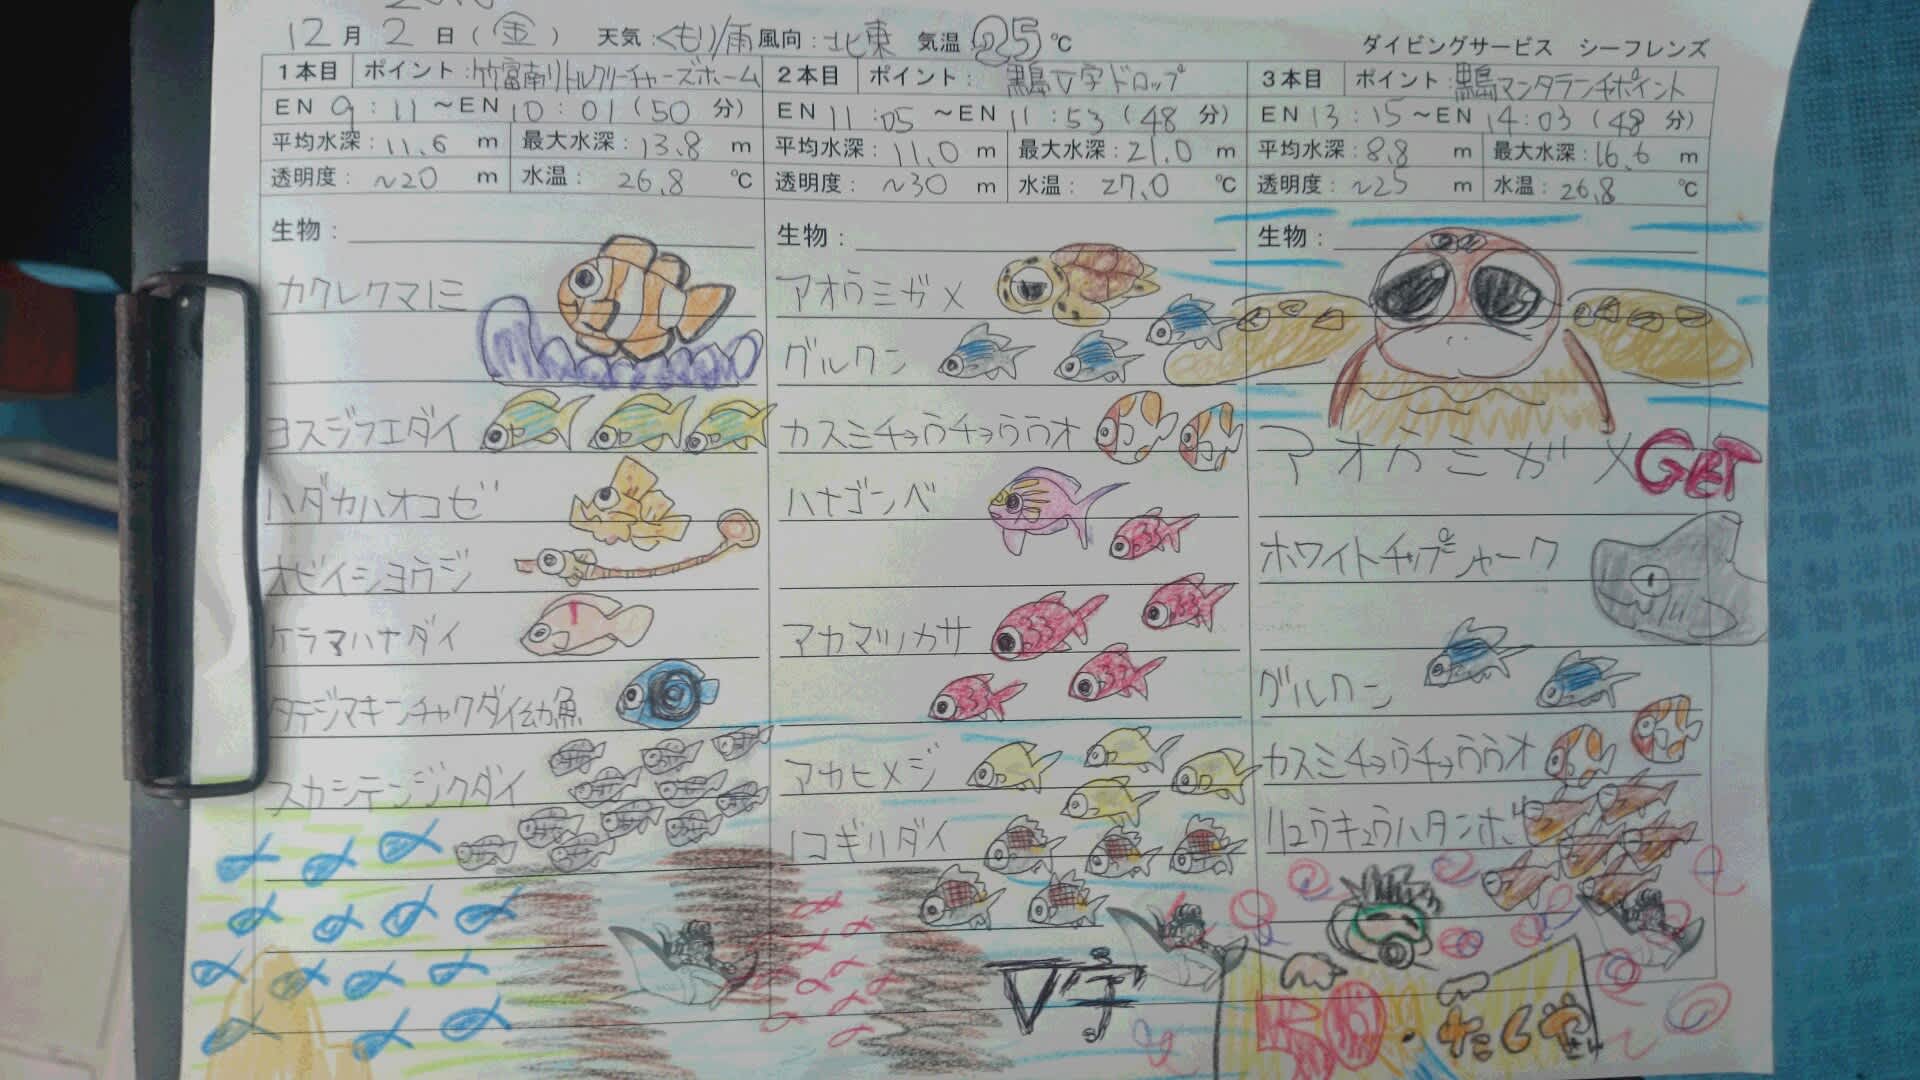 12月2日(金) 天気:くもり/雨 風向:北東 気温:25℃
ダイビングサービス シーフレンズ
1本目 ポイント:竹富南リトルクリーチャーズホーム
EN 9:11~EN 10:01(50分)
平均水深:11.6m 最大水深:13.8m
透明度:~20m 水温:26.8℃
生物:
カクレクマノミ
ヨスジフエダイ
ハダカハオコゼ
オビイシヨウジ
ケラマハナダイ
タテジマキンチャクダイ幼魚
スカシテンジクダイ
2本目 ポイント:黒島V字ドロップ
EN 11:05~EN 11:53(48分)
平均水深:11.0m 最大水深:21.0m
透明度:~30m 水温:27.0℃
生物:
アオウミガメ
グルクン
カスミチョウチョウウオ
ハナゴンベ
アカマツカサ
アカヒメジ
ノコギリダイ
V字
3本目 ポイント:黒島マンタランチポイント
EN 13:15~EN 14:03(48分)
平均水深:8.8m 最大水深:16.6m
透明度:~25m 水温:26.8℃
生物:
アオウミガメGET
ホワイトチップシャーク
グルクン
カスミチョウチョウウオ
リュウキュウハタンポ